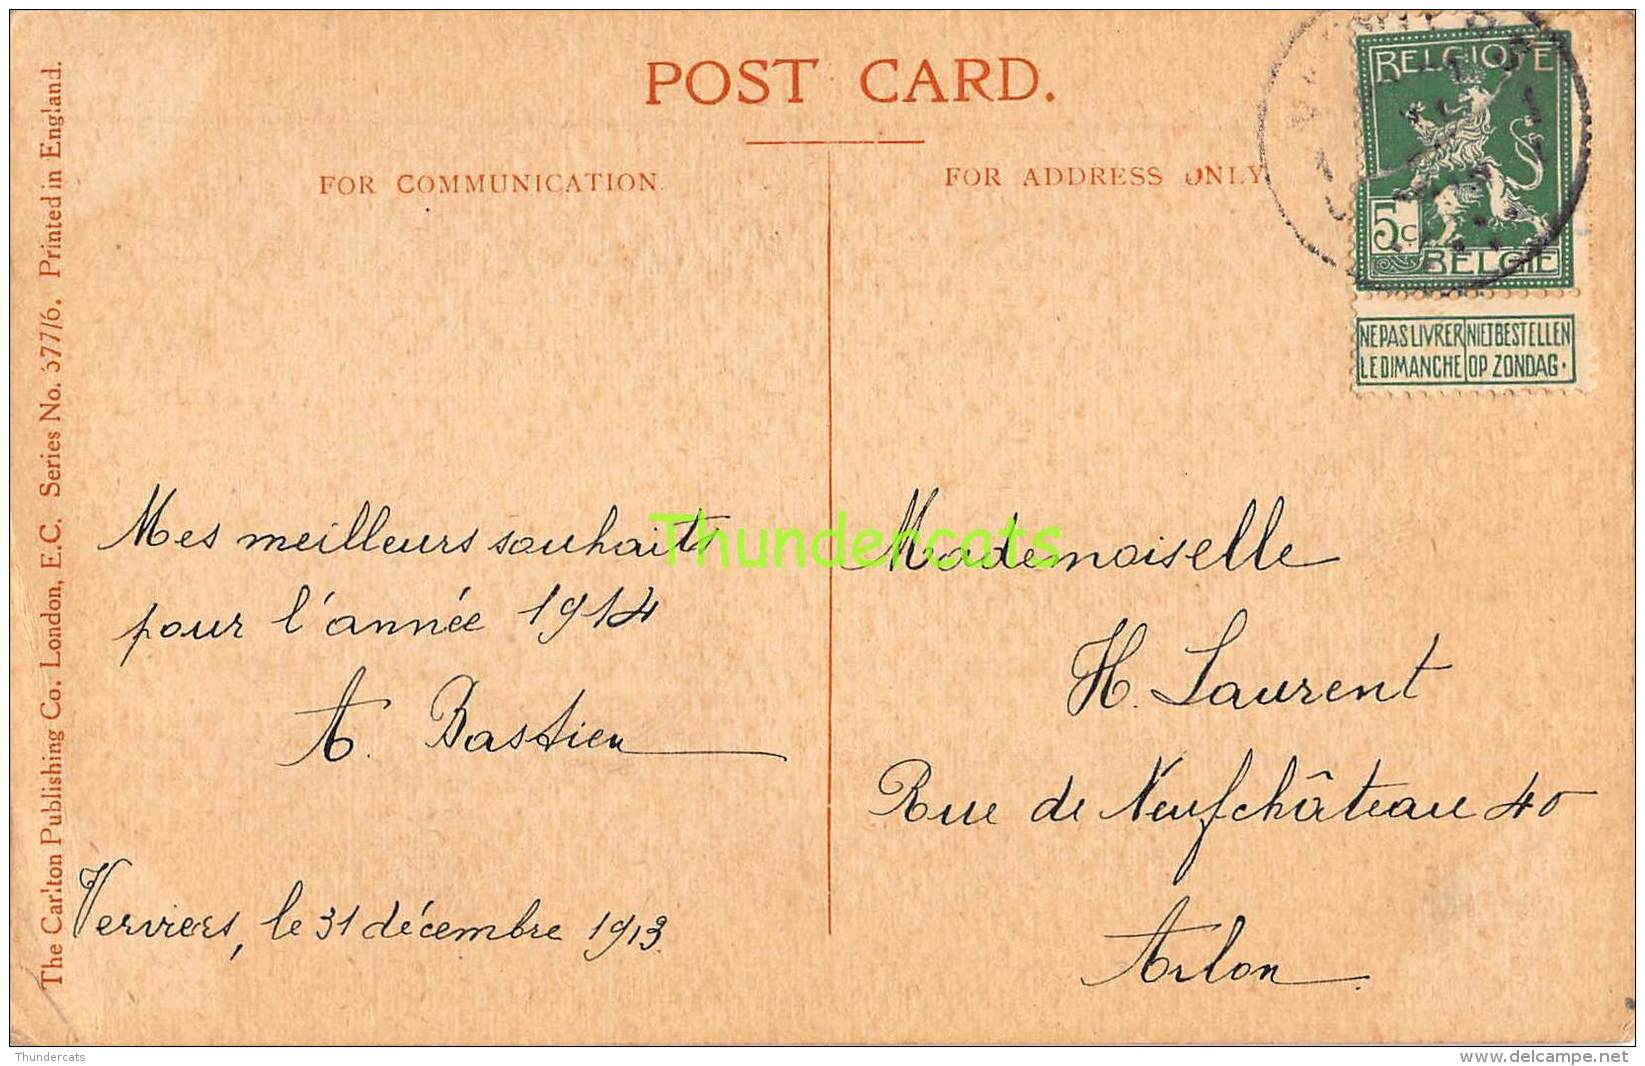 POST CARD.
FOR COMMUNICATION
FOR ADDRESS ONLY
BELGIQUE
5c
BELGIË
NE PAS LIVRER LE DIMANCHE
NIET BESTELLEN OP ZONDAG.
Mes meilleurs souhaits
pour l'année 1914
A. Bastien
Verviers, le 31 décembre 1913.
Mademoiselle
H. Laurent
Rue de Neufchâteau 40
Arlon
The Carlton Publishing Co. London, E.C. Series No. 677/6. Printed in England.
Thundercats
Thundercats
www.delcampe.net